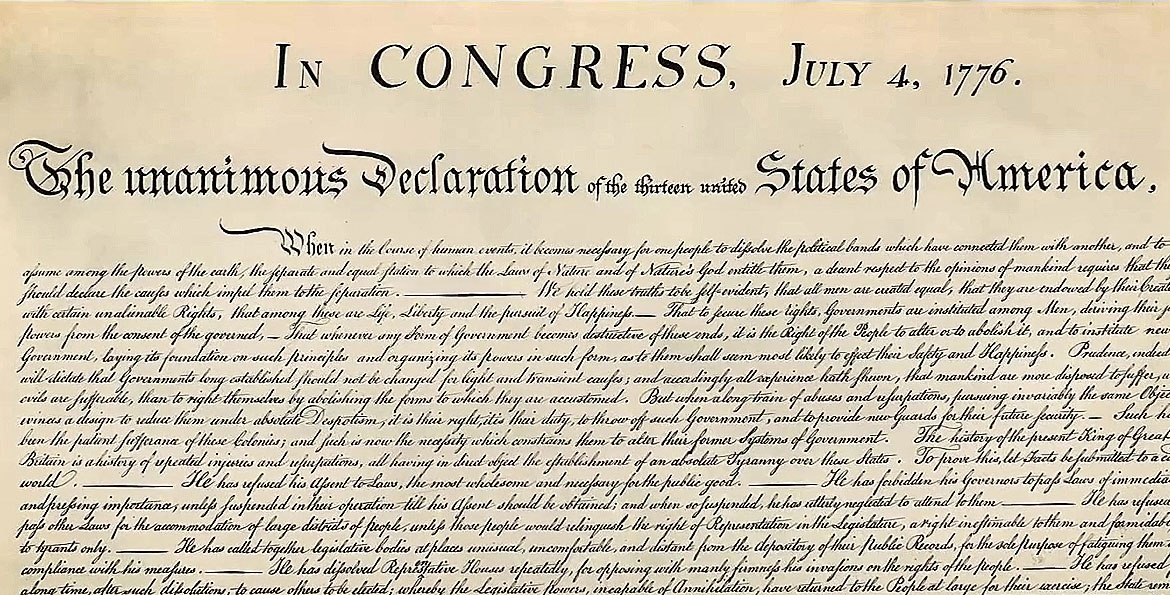 In CONGRESS, July 4, 1776.
The unanimous Declaration of the thirteen united States of America,
When in the Course of human events, it becomes necessary for one people to dissolve the political bands which have connected them with another, and to
assume among the powers of the earth, the separate and equal station to which the Laws of Nature and of Nature's God entitle them, a decent respect to the opinions of mankind requires that
should declare the causes which impel them to the separation. — We hold these truths to be self-evident, that all men are created equal, that they are endowed by their
with certain unalienable Rights, that among these are Life, Liberty and the pursuit of Happiness.— That to secure these rights, Governments are instituted among Men, deriving their
powers from the consent of the governed, — That whenever any Form of Government becomes destructive of these ends, it is the Right of the People to alter or to abolish it, and to institute
Government, laying its foundation on such principles and organizing its powers in such form, as to them shall seem most likely to effect their Safety and Happiness. Prudence, indeed
will dictate that Governments long established should not be changed for light and transient causes; and accordingly all experience hath shewn, that mankind are more disposed to suffer,
evils are sufferable, than to right themselves by abolishing the forms to which they are accustomed. But when a long train of abuses and usurpations, pursuing invariably the same
evinces a design to reduce them under absolute Despotism, it is their right, it is their duty, to throw off such Government, and to provide new Guards for their future security.— Such
been the patient sufferance of these Colonies; and such is now the necessity which constrains them to alter their former Systems of Government. The history of the present King of
Britain is a history of repeated injuries and usurpations, all having in direct object the establishment of an absolute Tyranny over these States. To prove this, let Facts be submitted to a
world. — He has refused his Assent to Laws, the most wholesome and necessary for the public good. — He has forbidden his Governors to pass Laws of
and pressing importance, unless suspended in their operation till his Assent should be obtained; and when so suspended, he has utterly neglected to attend to them — He has
pass other Laws for the accommodation of large districts of people, unless those people would relinquish the right of Representation in the Legislature, a right inestimable to them and
to tyrants only. — He has called together legislative bodies at places unusual, uncomfortable, and distant from the depository of their public Records, for the sole purpose of fatiguing them
compliance with his measures. — He has dissolved Representative Houses repeatedly, for opposing with manly firmness his invasions on the rights of the people. — He has refused
a long time, after such dissolutions, to cause others to be elected; whereby the Legislative powers, incapable of Annihilation, have returned to the People at large for their exercise; the State